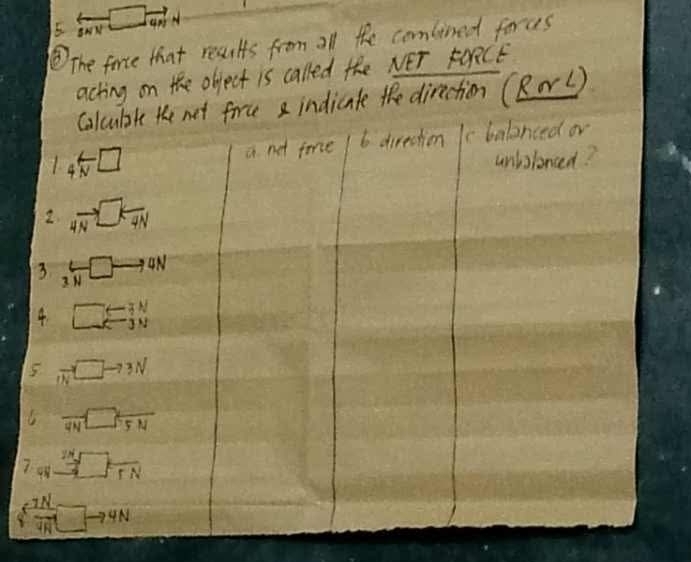 5. 4N N
② The force that results from all the combined forces
acting on the object is called the NET FORCE.
Calculate the net force & indicate the direction (R or L)
a. net force b. direction c balanced or
unbalanced?
1. 4N
2. 4N 4N
3 3N 4N
4. 3N
3N
5 1N 3N
6 4N 5N
7 2N
4N 5N
8 7N
4N 4N